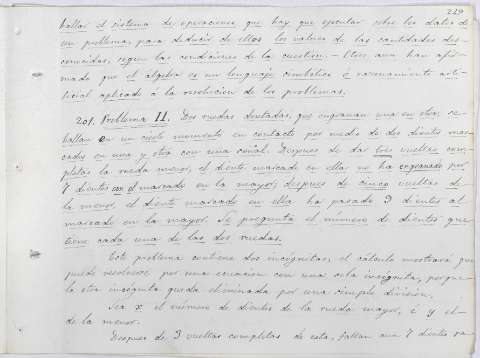 219
hallar el sistema de operaciones que hay que ejecutar sobre los datos de
un problema, para deducir de ellos los valores de las cantidades des-
conocidas, segun las condiciones de la cuestion. - Otros aun han afir-
mado que el algebra es un lenguaje simbólico ó razonamiento arti-
ficial aplicado á la resolucion de los problemas.
201. Problema II. Dos ruedas dentadas, que engranan una en otra, se
hallan en un cierto momento en contacto por medio de dos dientes mar-
cados en una y otra con una señal. Despues de dar tres vueltas com-
pletas la rueda menor, el diente marcado en ella no ha engranado por
7 dientes con el marcado en la mayor; despues de cinco vueltas de
la menor, el diente marcado en ella ha pasado 3 dientes al
marcado en la mayor. Se pregunta el número de dientes que
tiene cada una de las dos ruedas.
Este problema contiene dos incógnitas; el cálculo mostrará que
puede resolverse por una ecuacion con una sola incógnita, porque
la otra incógnita queda eliminada por una simple division.
Sea x el número de dientes de la rueda mayor, é y el
de la menor.
Despues de 3 vueltas completas de esta, faltan aun 7 dientes pa-